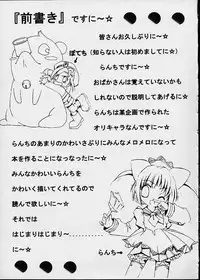 『前書き』ですに～☆
皆さんお久しぶりに～☆
ぽてち
(知らない人は初めましてに～☆)
らんちですに～☆
おばかさんは覚えていないかも
しれないので説明してあげるに～☆
らんちは某企画で作られた
オリキャラなんですに～☆
らんちのあまりのかわいさぶりにみんなメロメロになって
本を作ることになったなったに～☆
みんなかわいいらんちを
かわいく描いてくれてるので
読んで欲しいに～☆
それでは
はじまりはじまり～に～☆
らんち→